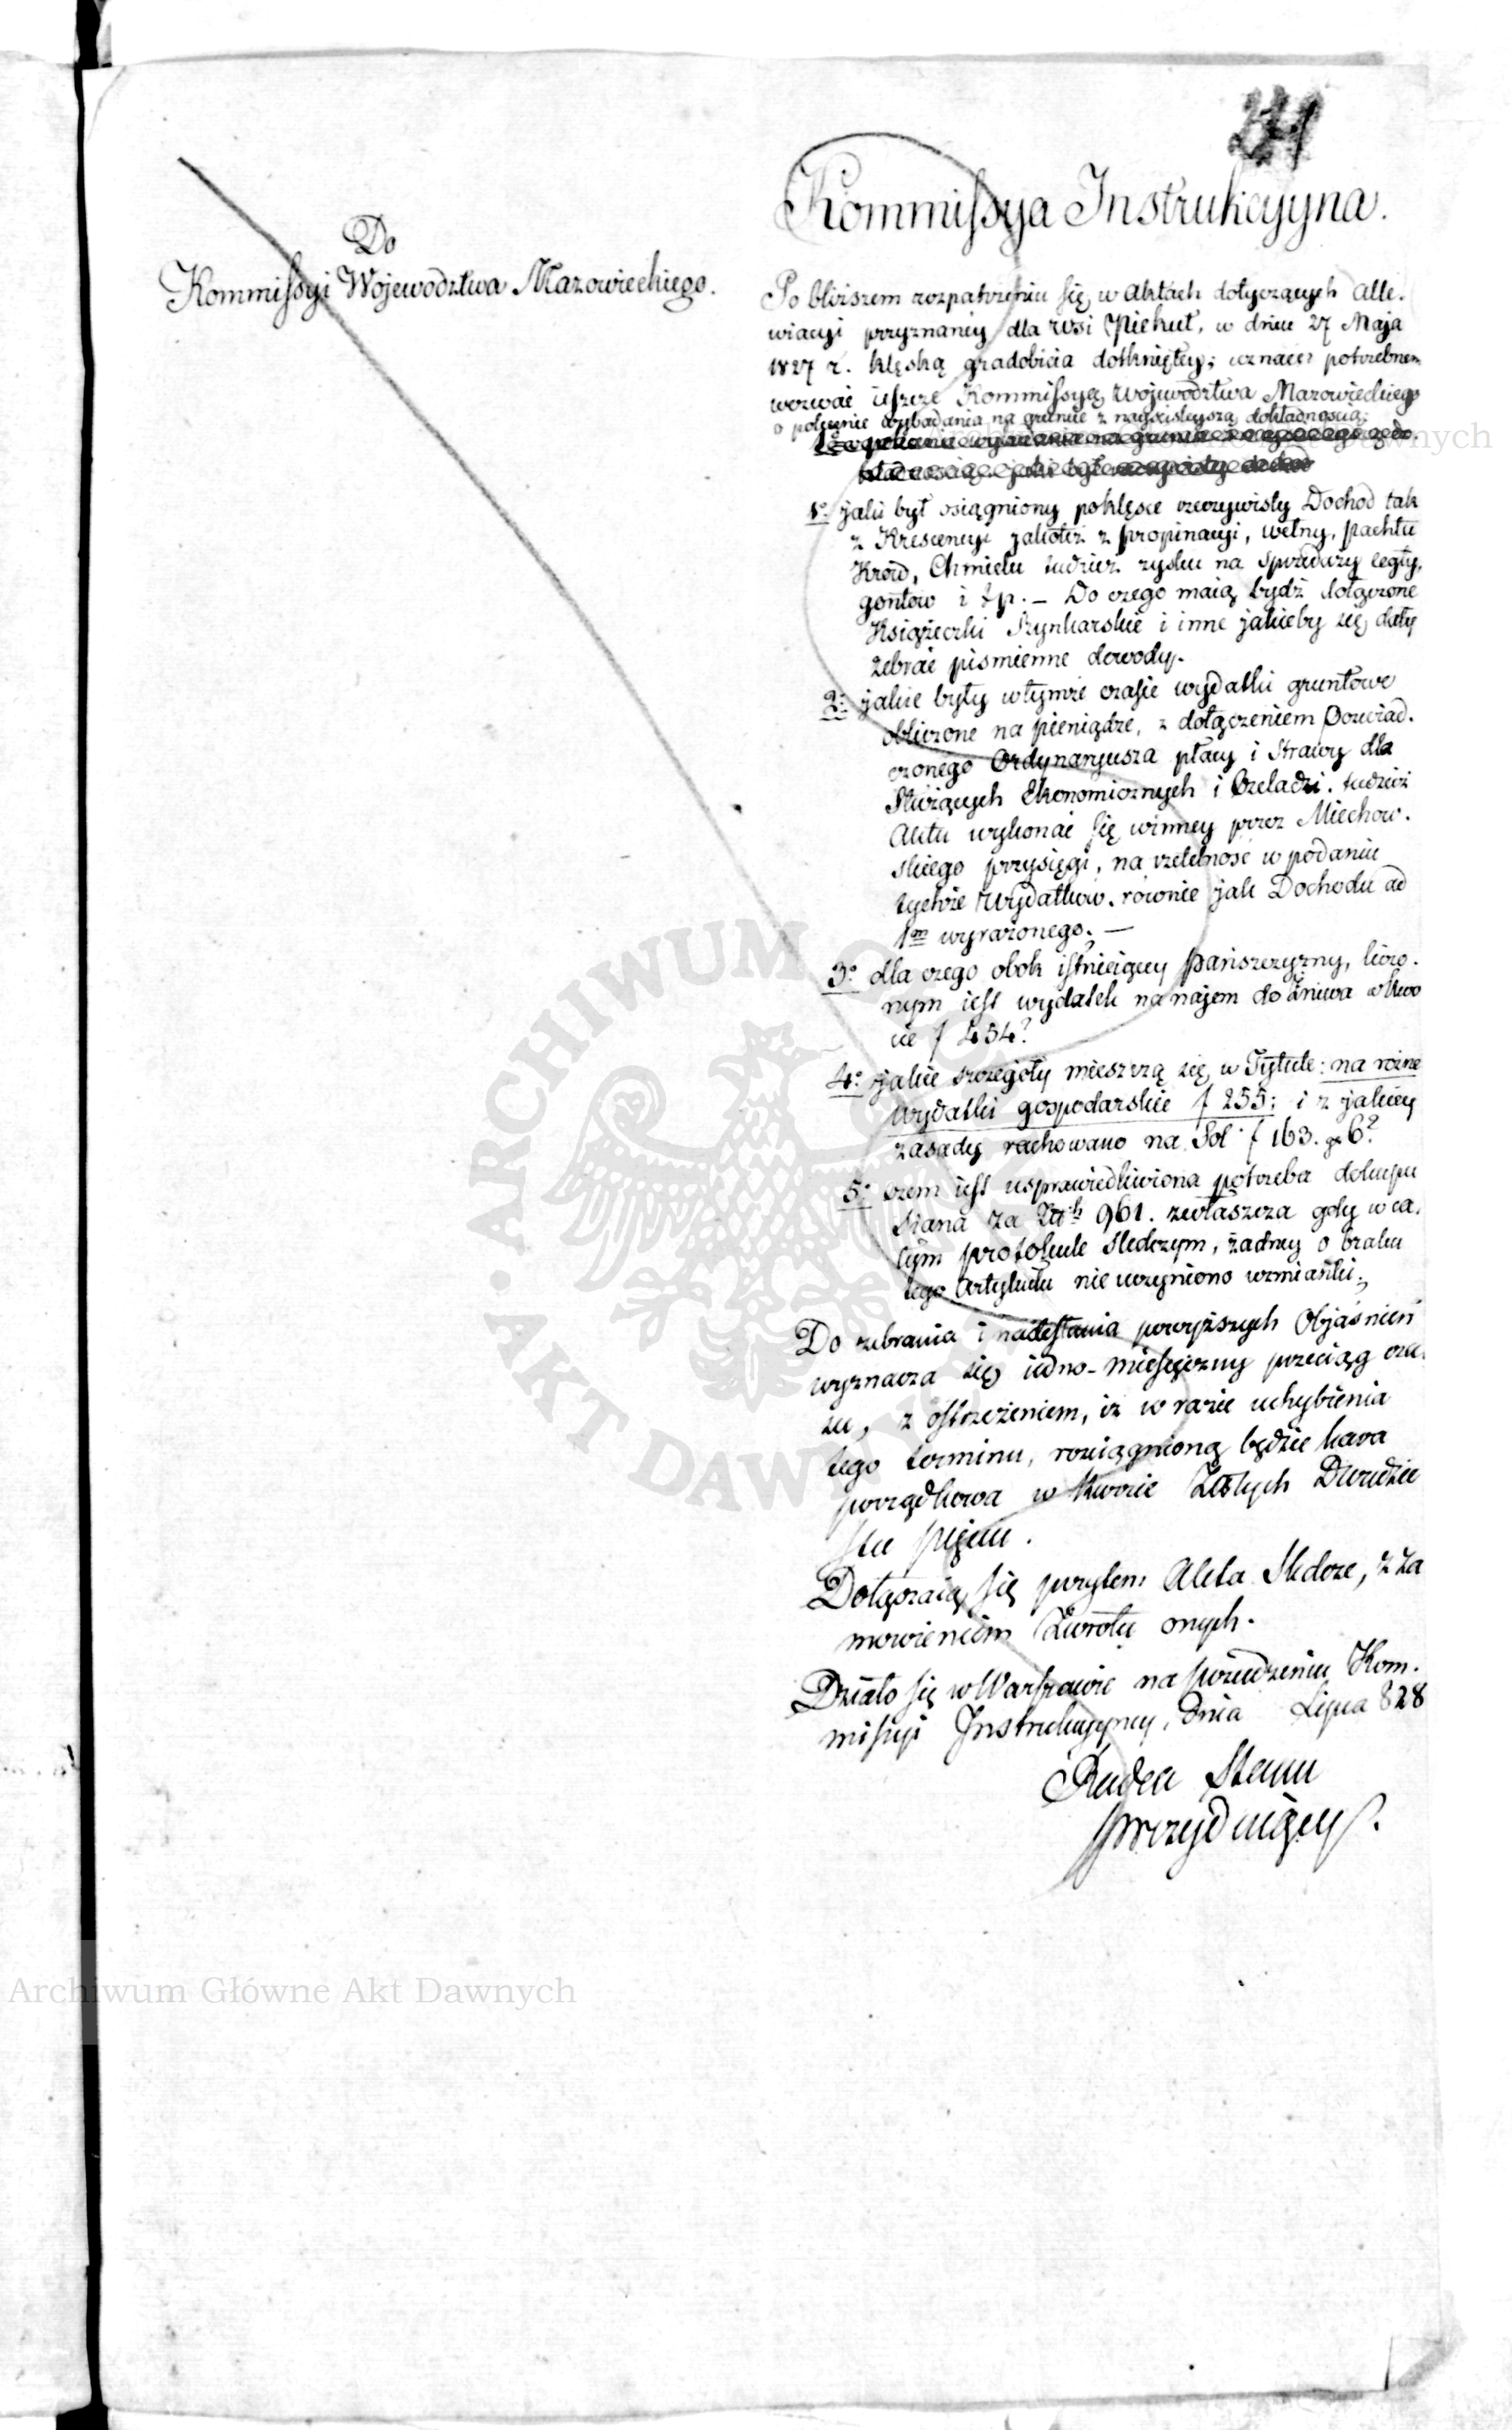 Kommissya Instrukcyyna.
Do
Kommissyi Województwa Mazowieckiego.
Po bliższem rozpatrzeniu się w aktach dotyczących alle.
wiacyi przyznaney dla Wsi Piekut, w dniu 27 Maja
1827 r. klęską gradobicia dotkniętey; uznaie potrzebnem
wezwać ieszcze Kommissyą Województwa Mazowieckiego
o polecenie wybadania na gruncie z nayściśleyszą dokładnością:
1o jaki był osiągniony po klęsce rzeczywisty Dochod tak
z Krescencyi jakoteż z propinacyi, wełny, pachtu
Krów, Chmielu tudzież zysku na sprzedaży cegły,
gontów i t p. – Do czego maią bydź dołączone
Książeczki Szynkarskie i inne jakieby się dały
zebrać piśmienne dowody.
2o jakie były w tymże czasie wydatki gruntowe
obliczone na pieniądze, z dołączeniem Poświad.
czonego Ordynaryusza płacy i Strawy dla
Służących Ekonomicznych i Czeladzi. tudzież
Aktu wykonać się winney przez Miechow.
skiego przysięgi, na rzetelność w podaniu
tychże Wydatków. równie jak Dochodu ad
1m wyrażonego. —
3o dla czego obok istnieiącey Pańszczyzny, liczo.
nym iest wydatek na najem do żniwa w kwo
cie f 454?
4o jakie szczegóły mieszczą się w Tytule: na różne
wydatki gospodarskie f 255; i z jakiey
zasady rachowano na Sól f 163. gr 6?
5o czem iest usprawiedliwiona potrzeba dokupu
siana za Złt 961. zwłaszcza gdy w ca.
łym protokule śledczym, żadney o braku
tego Artykułu nie uczyniono wzmianki.
Do zebrania i nadesłania powyższych Objaśnień
wyznacza się iedno-miesięczny przeciąg cza.
su, z ostrzeżeniem, iż w razie uchybienia
tego terminu, rozciągnioną będzie kara
porządkowa w kwocie Złotych Dwudzie
stu pięciu.
Dołączaią się przytem Akta Śledcze, z za
mówieniem Zwrotu onych.
Działo się w Warszawie na posiedzeniu Kom.
missyi Instrukcyyney, dnia Lipca 828
Radca Stanu
prezyduiący.
ARCHIWUM GŁÓWNE • AKT DAWNYCH •
Archiwum Główne Akt Dawnych
Archiwum Główne Akt Dawnych